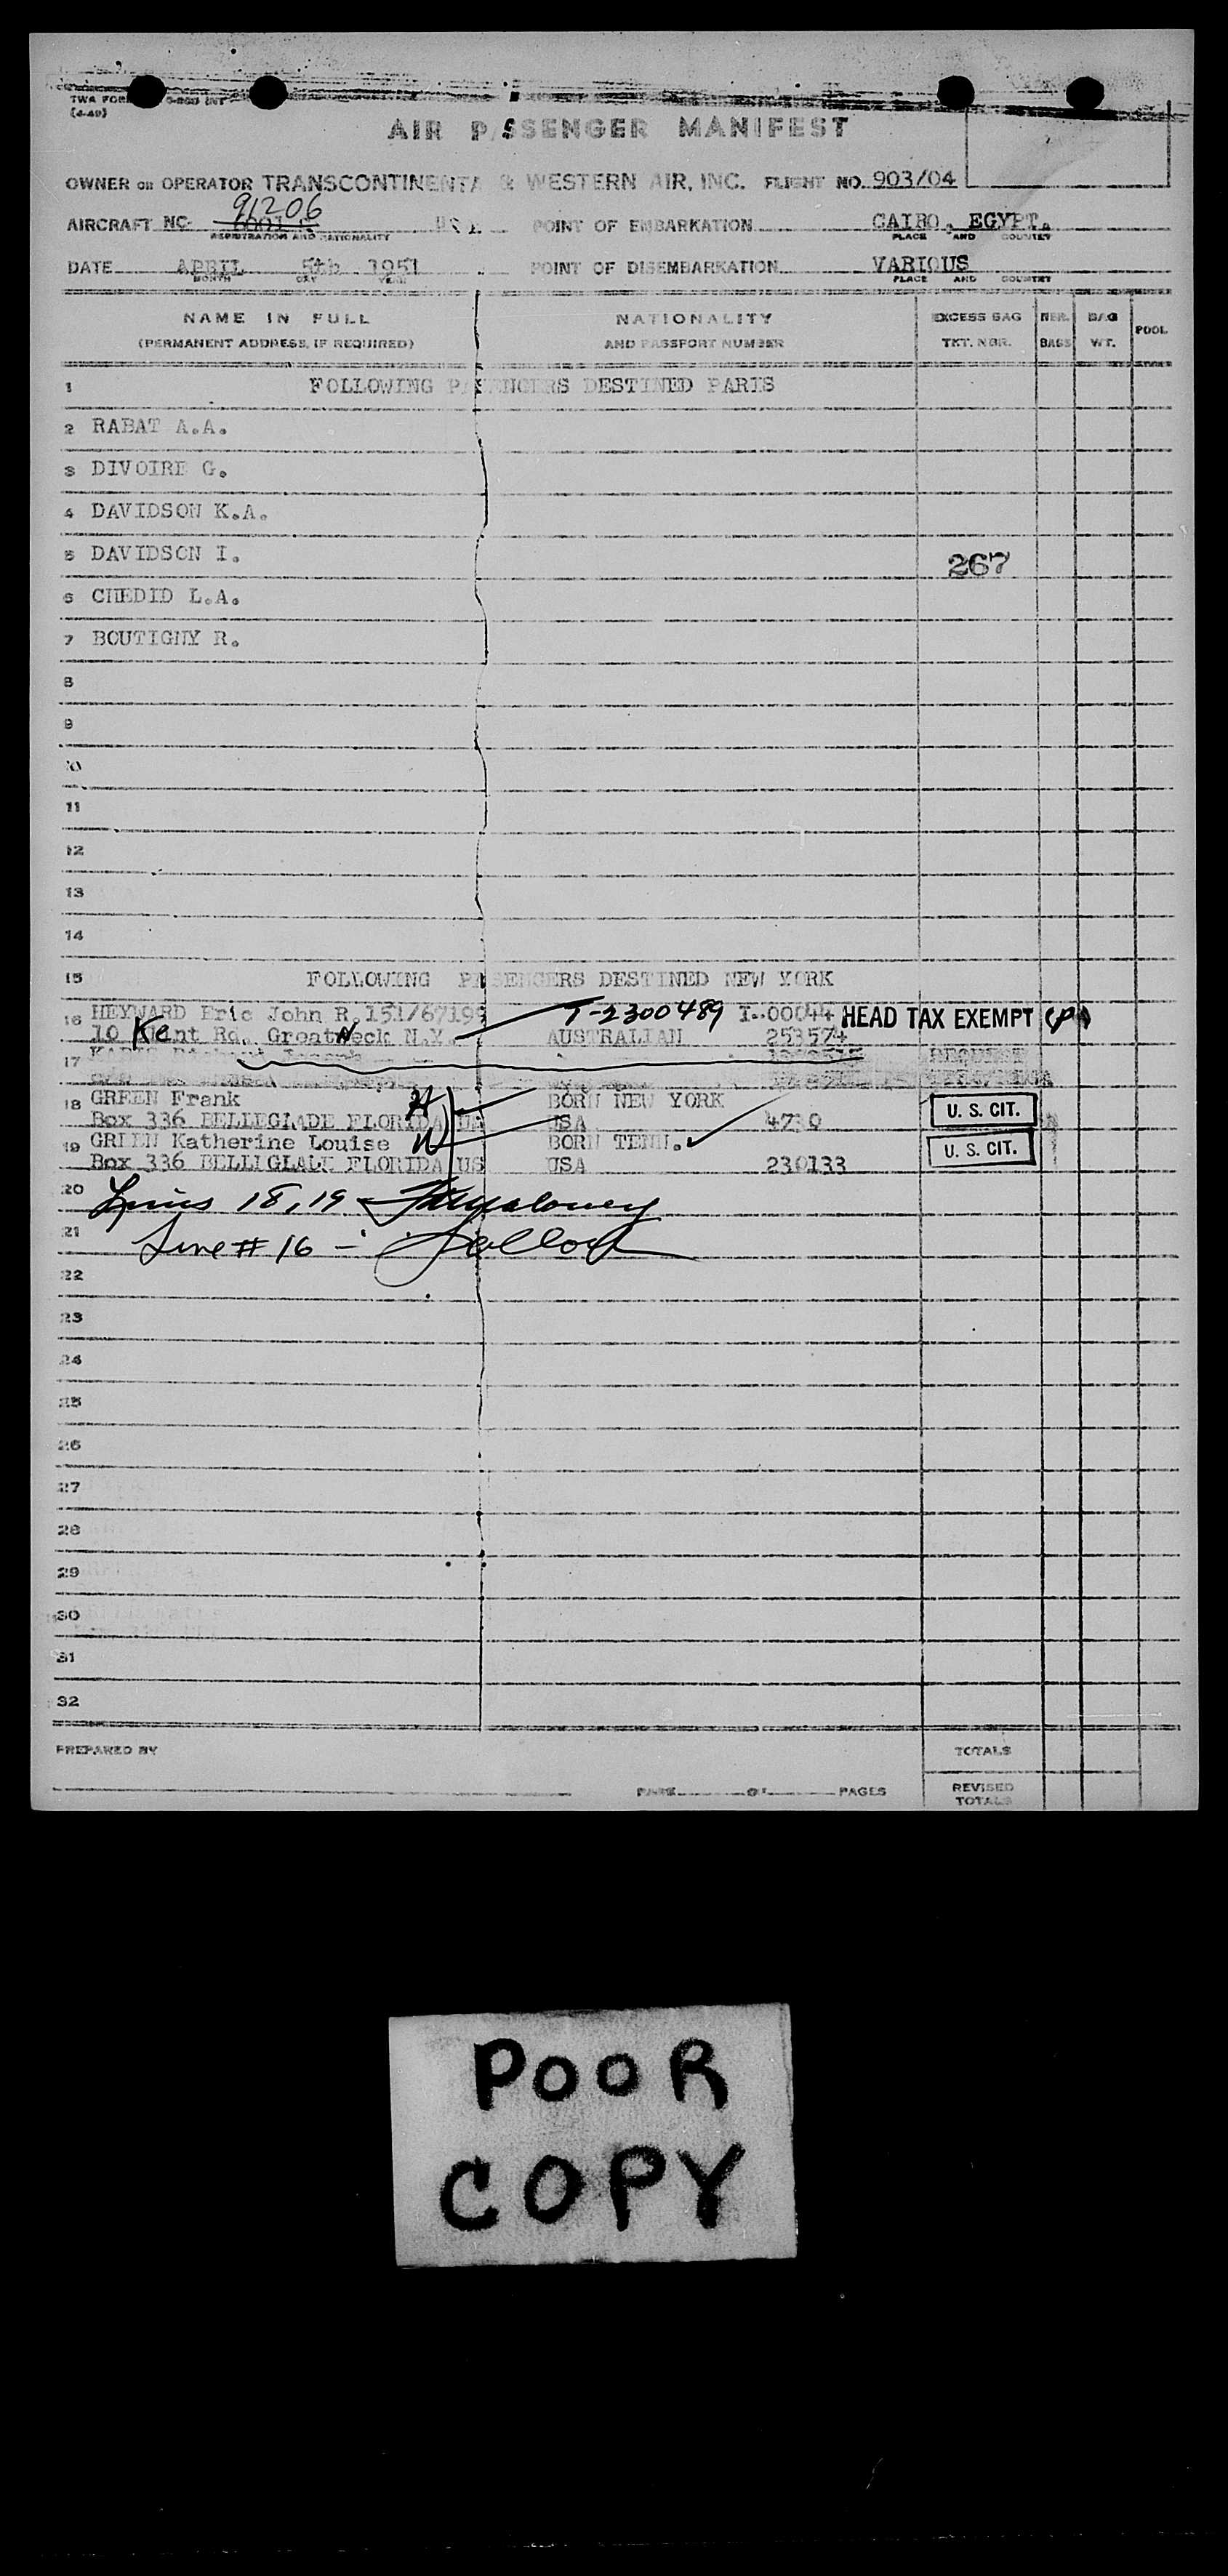 (4-49)
AIR PASSENGER MANIFEST
OWNER OR OPERATOR TRANSCONTINENTA & WESTERN AIR, INC. FLIGHT NO. 903/04
91206
AIRCRAFT NO. POINT OF EMBARKATION CAIRO, EGYPT.
REGISTRATION AND NATIONALITY PLACE AND COUNTRY
DATE APRIL 5th 1951 POINT OF DISEMBARKATION VARIOUS
MONTH DAY YEAR PLACE AND COUNTRY
NAME IN FULL NATIONALITY EXCESS BAG NBR. BAG POOL
(PERMANENT ADDRESS, IF REQUIRED) AND PASSPORT NUMBER TKT. NBR. BAGS WT.
1 FOLLOWING PASENGERS DESTINED PARIS
2 RABAT A.A.
3 DIVOIRE G.
4 DAVIDSON K.A.
5 DAVIDSON I. 267
6 CHEDID L.A.
7 BOUTIGNY R.
8
9
10
11
12
13
14
15 FOLLOWING PASENGERS DESTINED NEW YORK
16 HEYWARD Eric John R. 151/67199 T-2300489 I-00044 HEAD TAX EXEMPT
10 Kent Rd. Great Neck N.Y. AUSTRALIAN 253574
17
18 GREEN Frank H BORN NEW YORK U. S. CIT.
Box 336 BELLEGLADE FLORIDA USA 4730
19 GREEN Katherine Louise W BORN TENN. U. S. CIT.
Box 336 BELLEGLADE FLORIDA US USA 230133
20 Lines 18, 19
21 Line # 16 -
22
23
24
25
26
27
28
29
30
31
32
PREPARED BY TOTALS
PAGE OF PAGES REVISED
TOTALS
POOR
COPY